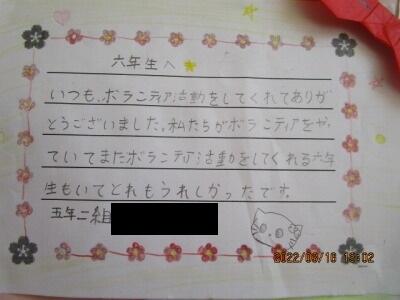 六年生へ
いつも、ボランティア活動をしてくれてありが
とうございました。私たちがボランティアをや
ていてまたボランティア活動をしてくれる六年
生もいてとれもうれしかったです。
五年二組
2022/03/16 13:02